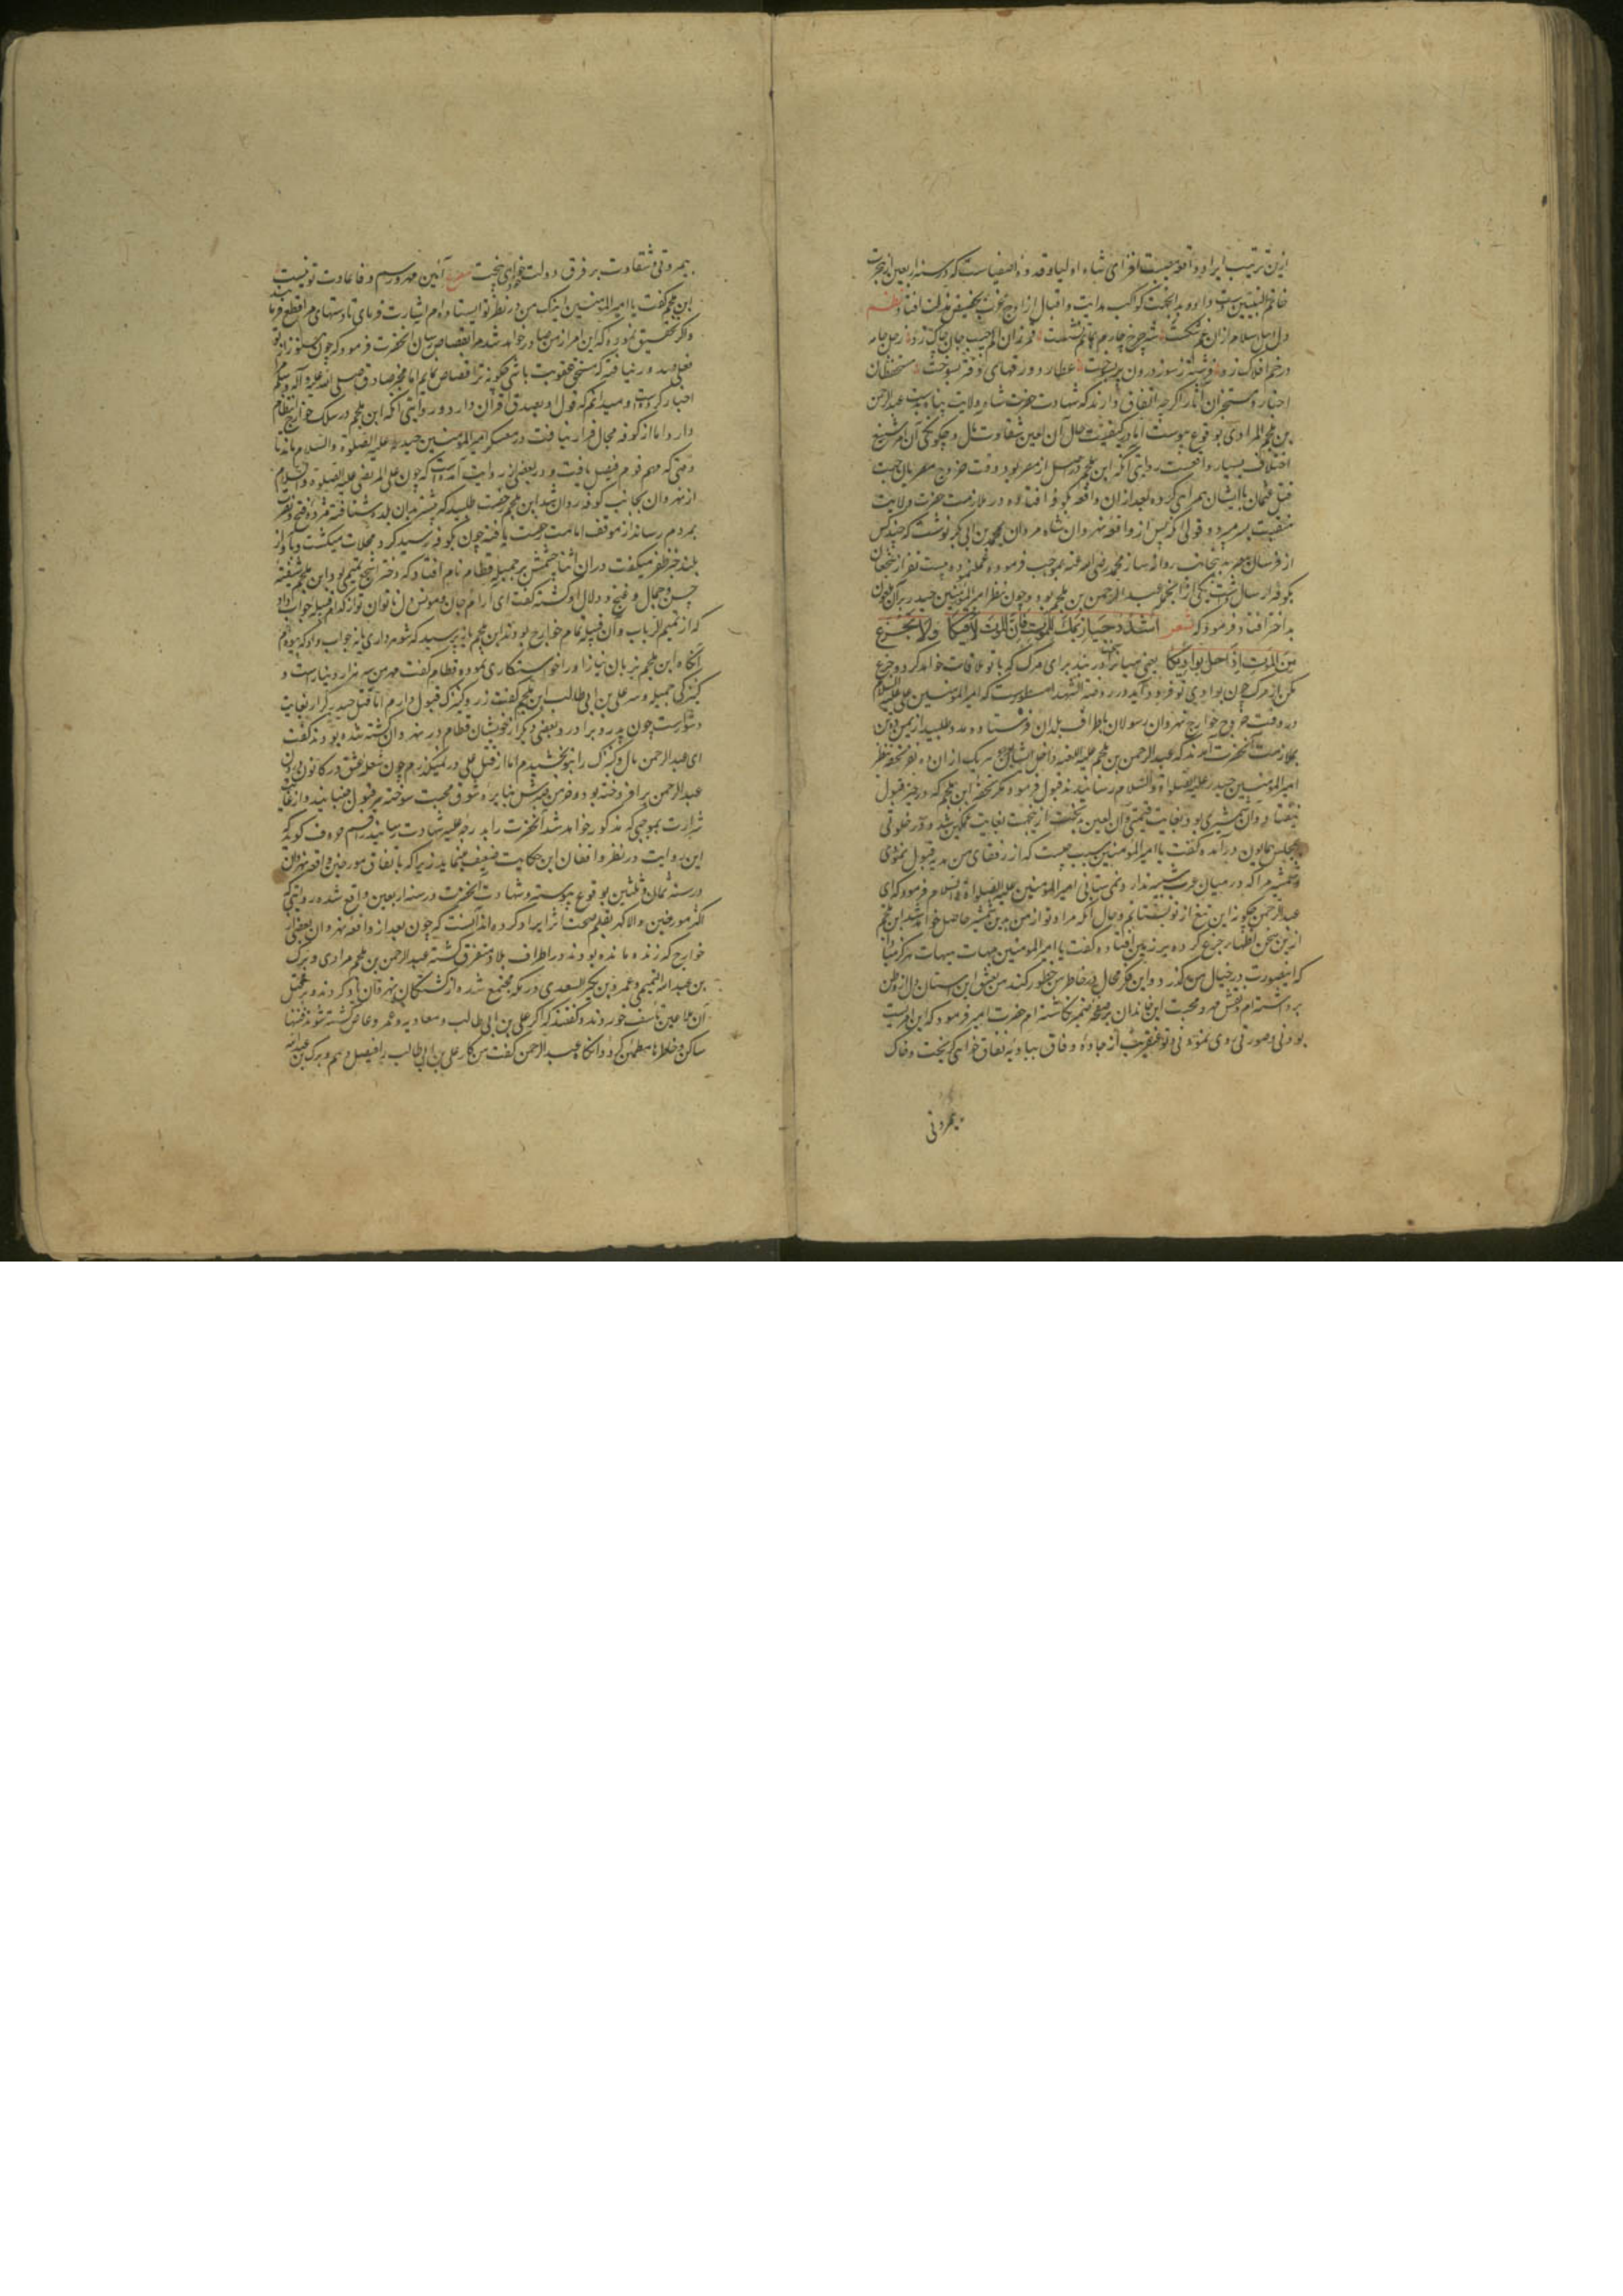 ازین ترتیب ایراد واقعه مصیبت افزای شاه اولیا وقدوه اصفیاست که در سنه اربعین از هجرت
خاتم النبیین ست و کواکب هدایت و اقبال از اوج بحضیض افتاد نظم
دل اهل اسلام از ان غم شکست شه چرخ چارم بماتم نشست قمر زان الم جیب جان چاک زد زحل جامه
در خم افلاک زد فرشته ز سوز درون پر بسوخت عطارد ورقهای دفتر بسوخت مستحفظان
اخبار و مستخبران آثار اگرچه اتفاق دارند که شهادت حضرت شاه ولایت پناه بدست عبد الرحمن
بن ملجم المرادی بوقوع پیوست اما در کیفیت حال آن لعین شقاوت مآل و چگونگی آن امر شنیع
اختلاف بسیار واقعست روایتی آنکه ابن ملجم در اصل از مصر بود و وقت خروج مصریان جهت
قتل عثمان با ایشان همراهی کرده بعد از ان واقعه بکوفه افتاده در ملازمت حضرت ولایت
منقبت بسر میبرد و قولی آنکه پس از واقعه نهروان شاه مردان بمحمد بن ابی بکر نوشت که چند کس
از فرسان مصر بدینجانب روانه ساز محمد رضی الله عنه بموجب فرموده عمل نموده بیست نفر از شجعان
بکوفه ارسال داشت یکی از آنجمله عبد الرحمن بن ملجم بود و چون نظر امیر المؤمنین حیدر بر آن ملعون
بد اختر افتاد فرمود که شعر اشدد حیازیمک للموت فان الموت لاقیکا ولا تجزع
من الموت اذا حل بوادیکا یعنی میانرا در بند برای مرگ که با تو ملاقات خواهد کرد و جزع
مکن از مرگ چون بوادی تو فرود آید و در روضة الشهدا مسطورست که امیر المؤمنین علی علیه السلام
در وقت خروج خوارج نهروان رسولان باطراف بلدان فرستاده مدد طلبید از یمن ده تن
بملازمت آنحضرت آمدند که عبد الرحمن بن ملجم علیه اللعنه داخل ایشان بود هر یک از ان ده نفر تحفه بنظر
امیر المؤمنین حیدر علیه الصلوة والسلام رسانیدند قبول فرمود مگر تحفه ابن ملجم که در حیز قبول
نیفتاد و آن شمشیری بود بغایت قیمتی و آن لعین بدبخت از ینجهت بغایت غمگین شد و در خلوتی
بمجلس همایون درآمده گفت یا امیر المؤمنین سبب چیست که از رفقای من هدیه قبول نمودی
و شمشیر مرا که در میان عرب شبیه ندارد نمی ستانی امیر المؤمنین علیه الصلوة والسلام فرمود که ای
عبد الرحمن چگونه این تیغ از تو بستانم و حال آنکه مراد تو از من بدین شمشیر حاصل خواهد شد ابن ملجم
از ین سخن اظهار جزع کرده بر زمین افتاده گفت یا امیر المؤمنین هیهات هیهات هرگز مبادا
که اینصورت در خیال من گذرد و این فکر محال در خاطر من خطور کند من بعشق این آستان دل از وطن
برداشته ام و نقش مهر و محبت این خاندان بر صفحه ضمیر نگاشته ام حضرت امیر فرمود که این امریست
بودنی و صورتی روی نمودنی و تو عنقریب از جاده وفاق ببادیه نفاق خواهی گریخت و خاک
بیمروتی
بیمروتی و شقاوت بر فرق دولت خود خواهی بیخت مصرع آئین مهر و رسم وفا عادت تو نیست
ابن ملجم گفت یا امیر المؤمنین اینک من در نظر تو ایستاده ام اشارت فرمای تا دستهای مرا قطع فرمایند
و اگر تحقیق نموده که این امر از من صادر خواهد شد مرا بقصاص رسان آنحضرت فرمود که چون هنوز از تو
فعلی صدور نیافته که مستحق عقوبت باشی چگونه ترا قصاص نمایم اما مخبر صادق صلی الله علیه و آله و سلم
اخبار کرده است و میدانم که قول او بصدق اقتران دارد و روایتی آنکه ابن ملجم در سلک خوارج انتظام
دارد اما از کوفه مجال فرار نیافت در معسکر امیر المؤمنین حیدر علیه الصلوة والسلام ماند تا
وقتی که مهم قوم فیصل یافت و در بعضی از روایت آمده است که چون علی المرتضی علیه الصلوة والسلام
از نهروان بجانب کوفه روان شد ابن ملجم رخصت طلبید که پیشتر بدان بلده شتافته مژده فتح و نصرت
بمردم رساند از موقف امامت رخصت یافته چون بکوفه رسید گرد محلات میگشت و بآواز
بلند خبر ظفر میگفت در ان اثنا چشمش بر جمیله قطام نام افتاد که دختر اشجع تمیمی بود ابن ملجم شیفته
حسن و جمال و غنج و دلال او گشته گفت ای آرام جان و مونس دل ناتوان تو از کدام قبیله جواب داد
که از تمیم الرباب و آن قبیله تمام خوارج بودند ابن ملجم باز پرسید که شوهر داری یا نه جواب داد که بیوه ام
آنگاه ابن ملجم بزبان نیاز او را خواستگاری نموده قطام گفت مهر من سه هزار دینارست و
کنیزکی جمیله و سر علی بن ابی طالب ابن ملجم گفت زر و کنیزک قبول دارم اما قتل حیدر کرار بغایت
دشوارست چون پدر و برادر و بعضی دیگر از خویشان قطام در نهروان کشته شده بودند گفت
ای عبد الرحمن مال و کنیزک را بتو بخشیدم اما از قتل علی در نمیگذرم چون شعله عشق در کانون درون
عبد الرحمن برافروخته بود و خرمن صبرش بنایره شوق محبت سوخته سر قبول جنبانید و از غایت
شرارت بموجبی که مذکور خواهد شد آنحضرت را بدرجه علیه شهادت رسانید راقم حروف گوید که
این روایت در نظر واقفان این حکایت ضعیف مینماید زیرا که باتفاق مورخین واقعه نهروان
در سنه ثمان و ثلثین بوقوع پیوسته و شهادت آنحضرت در سنه اربعین واقع شده روایتی که
اکثر مورخین والا گهر بقلم صحت اثر ایراد کرده اند آنست که چون بعد از واقعه نهروان بعضی از
خوارج که زنده مانده بودند در اطراف بلاد متفرق گشته عبد الرحمن بن ملجم مرادی و برک
بن عبد الله التمیمی و عمرو بن بکر السعدی در مکه مجتمع شده از کشتگان نهروان یاد کردند و بر قتل
آن ملاعین تأسف خوردند و گفتند که اگر علی بن ابی طالب و معاویه و عمرو عاص کشته شوند فتنها
ساکن و خاطرها مطمئن گردد آنگاه عبد الرحمن گفت من کار علی بن ابی طالب را فیصل دهم و برک بن عبد الله